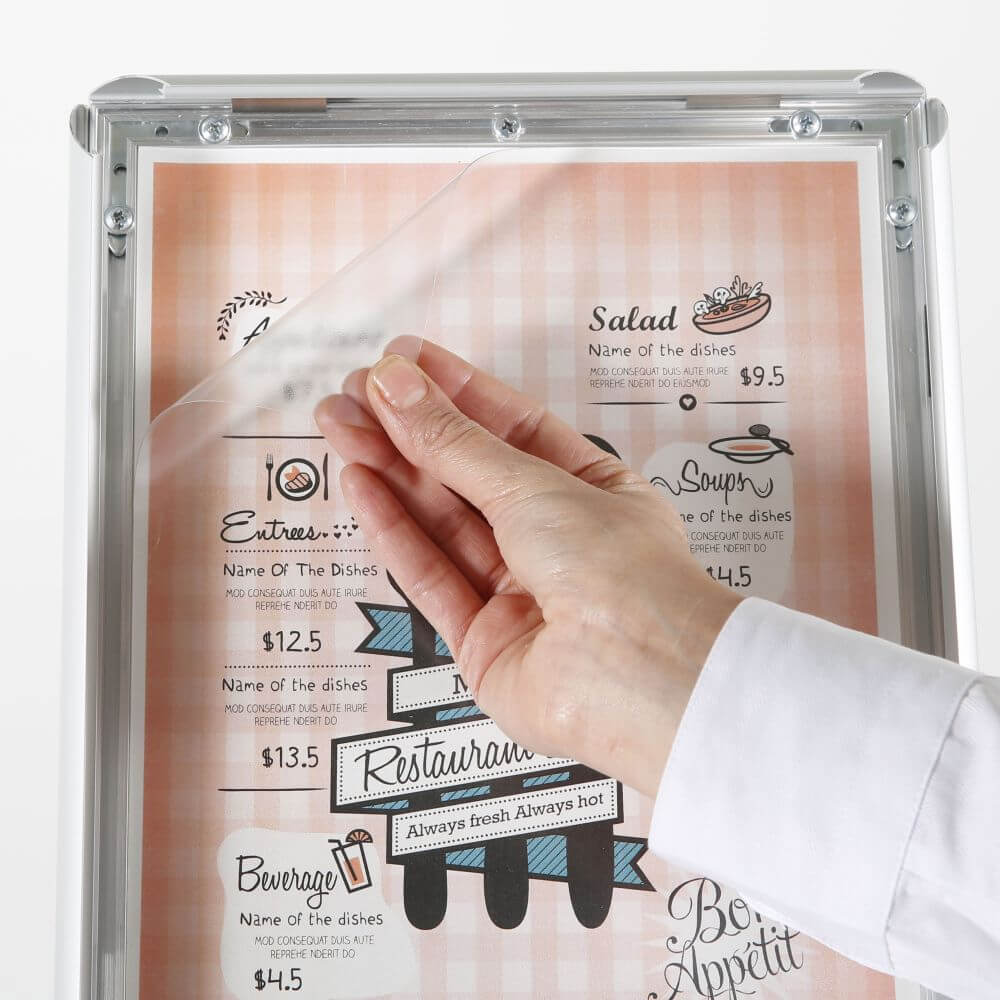 Salad
Name of the dishes
MOD CONSEQUAT DUIS AUTE IRURE
REPREHE NDERIT DO EIUSMOD
$9.5
Soups
e of the dishes
CONSEQUAT DUIS AUTE
EPREHE NDERIT DO
$4.5
Entrees
Name Of The Dishes
MOD CONSEQUAT DUIS AUTE IRURE
REPREHE NDERIT DO
$12.5
Name of the dishes
MOD CONSEQUAT DUIS AUTE IRURE
REPREHE NDERIT DO
$13.5
M
Restauran
Always fresh Always hot
Beverage
Name of the dishes
MOD CONSEQUAT DUIS AUTE
REPREHE NDERIT DO
$4.5
Bon
Appétit